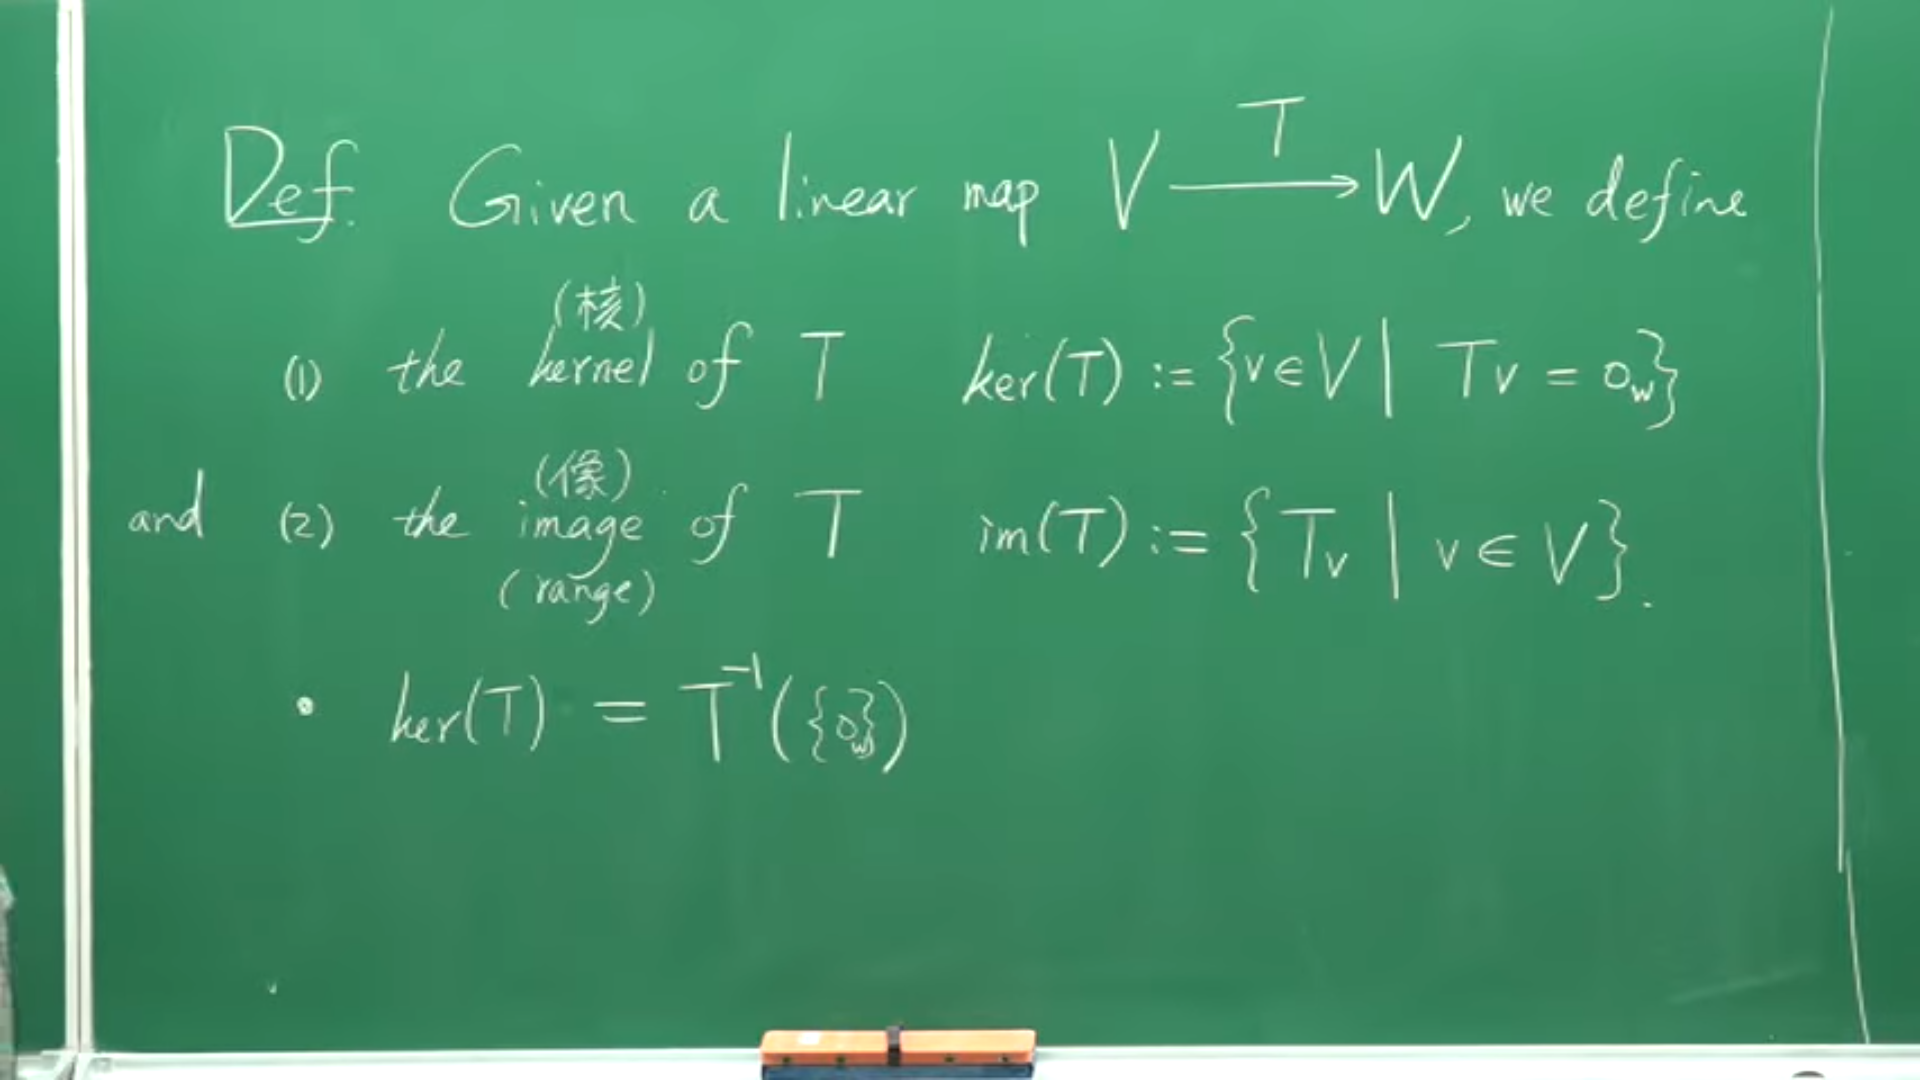 Def. Given a linear map V \xrightarrow{T} W, we define
(核)
(1) the kernel of T ker(T) := {v ∈ V | Tv = 0_W}
(像)
and (2) the image of T im(T) := {Tv | v ∈ V}.
(range)
• ker(T) = T⁻¹({0_W})